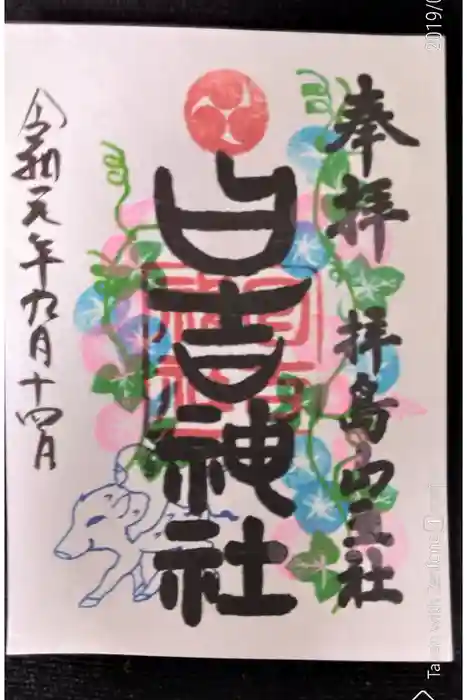 奉拝 拝島山王社
日吉神社
令和元年九月十四月
2019/0
Taken with Zenfone